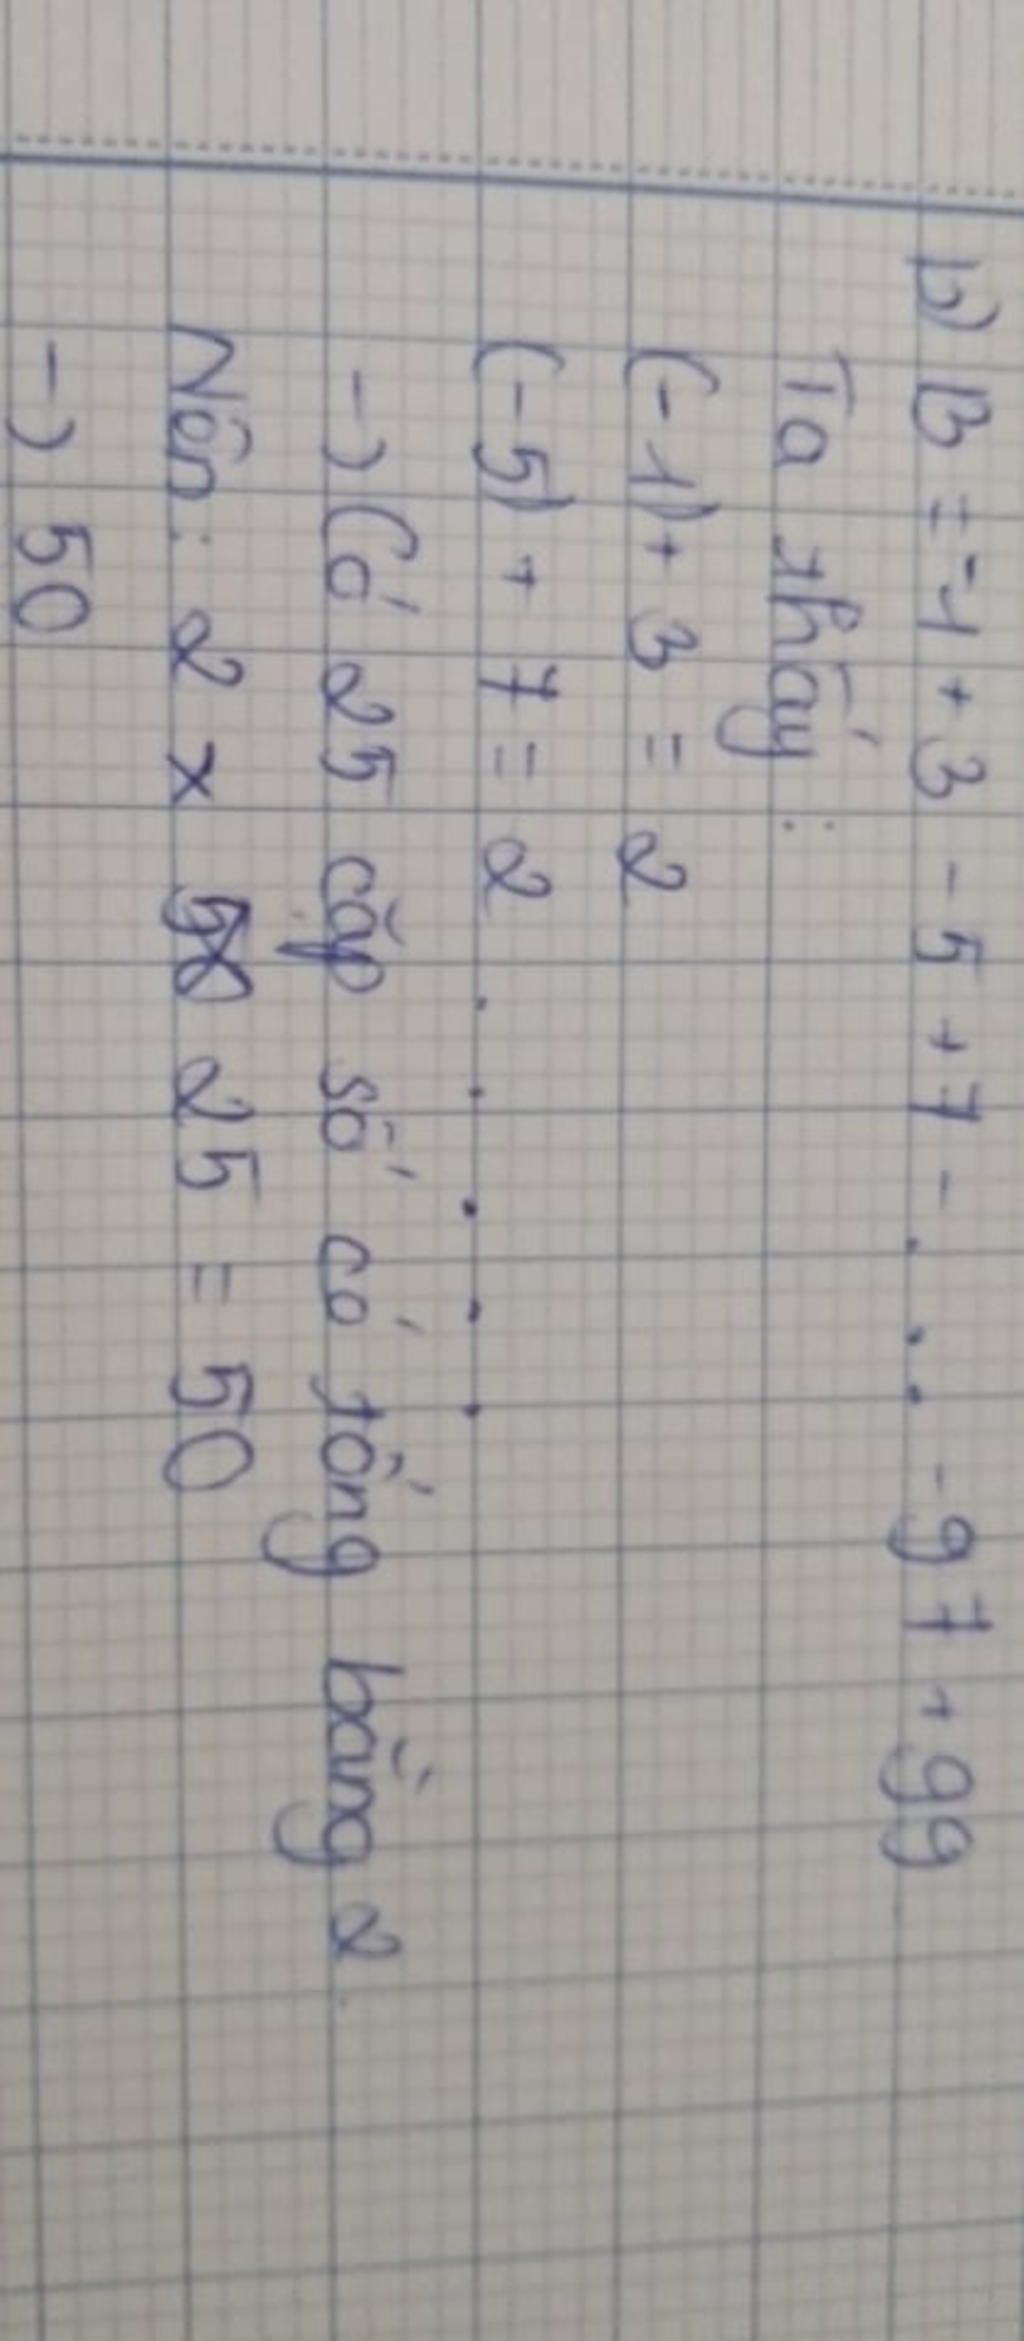 b) B = -1 + 3 - 5 + 7 - ... - 97 + 99
Ta thấy:
(-1) + 3 = 2
(-5) + 7 = 2
.....
-) Có 25 cặp số có tổng bằng 2.
Nên: 2 x 25 = 50
-) 50